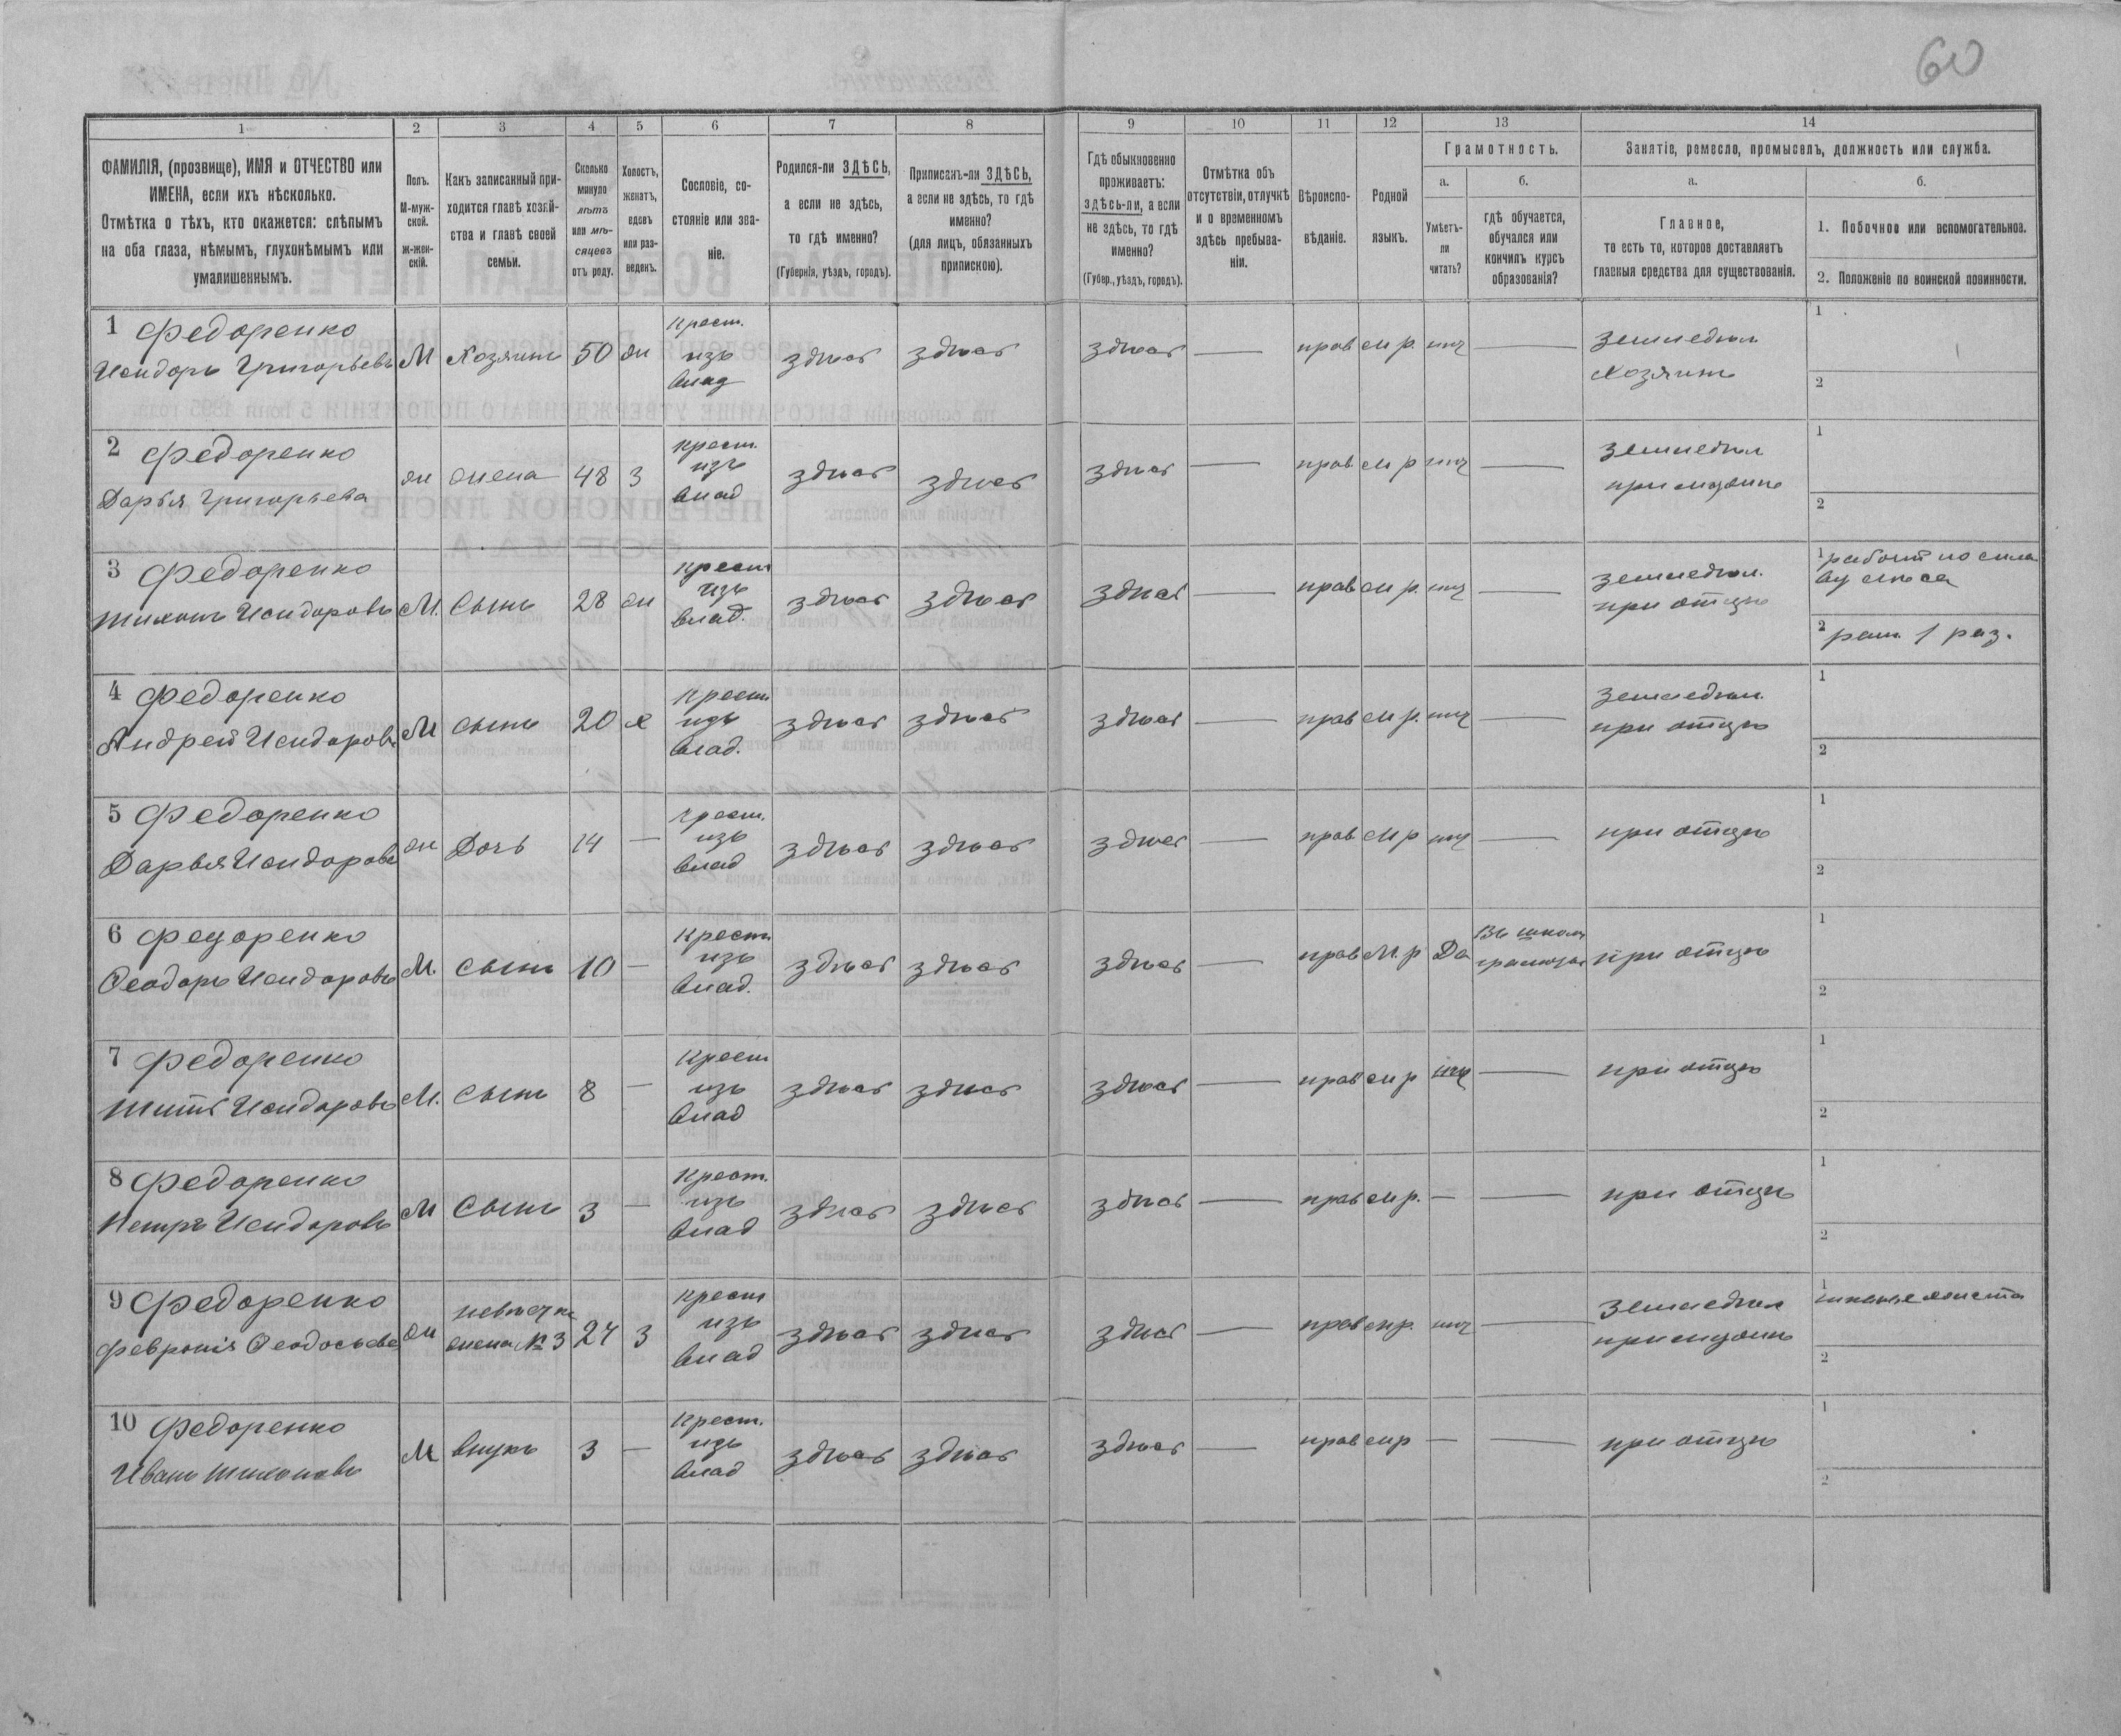 60
1 2 3 4 5 6 7 8 9 10 11 12 13 14
ФАМИЛІЯ, (прозвище), ИМЯ и ОТЧЕСТВО или
ИМЕНА, если ихъ нѣсколько.
Отмѣтка о тѣхъ, кто окажется: слѣпымъ
на оба глаза, нѣмымъ, глухонѣмымъ или
умалишеннымъ.
Полъ.
М-муж-
ской.
ж-жен-
скій.
Какъ записанный при-
ходится главѣ хозяй-
ства и главѣ своей
семьи.
Сколько
минуло
лѣтъ
или мѣ-
сяцевъ
отъ роду.
Холостъ,
женатъ,
вдовъ
или раз-
веденъ.
Сословіе, со-
стояніе или зва-
ніе.
Родился-ли ЗДѢСЬ,
а если не здѣсь,
то гдѣ именно?
(Губернія, уѣздъ, городъ).
Приписанъ-ли ЗДѢСЬ,
а если не здѣсь, то гдѣ
именно?
(для лицъ, обязанныхъ
припискою).
Гдѣ обыкновенно
проживаетъ:
здѣсь-ли, а если
не здѣсь, то гдѣ
именно?
(Губер., уѣздъ, городъ).
Отмѣтка объ
отсутствіи, отлучкѣ
и о временномъ
здѣсь пребыва-
ніи.
Вѣроиспо-
вѣданіе.
Родной
языкъ.
Грамотность.
а.
Умѣетъ-
ли
читать?
б.
гдѣ обучается,
обучался или
кончилъ курсъ
образованія?
Занятіе, ремесло, промыселъ, должность или служба.
а.
Главное,
то есть то, которое доставляетъ
главныя средства для существованія.
б.
1. Побочное или вспомогательное.
2. Положеніе по воинской повинности.
1 Федоренко
Исидоръ Григорьевъ М Хозяинъ 50 ж Крест. изъ влад здѣсь здѣсь здѣсь — прав м р. нѣт — Земледѣл. Хозяинъ 1
2
2 Федоренко
Дарья Григорьева ж жена 48 З крест. изъ влад здѣсь здѣсь здѣсь — прав м р нѣт — Земледѣл при мужѣ 1
2
3 Федоренко
Тихонъ Исидоровъ М. Сынъ 28 ж крест изъ влад. здѣсь здѣсь здѣсь — прав м р. нѣт — земледѣл. при отцѣ 1 работ по спла
ву лѣса
2 рат. 1 раз.
4 Федоренко
Андрей Исидоровъ М сынъ 20 х Крест изъ влад. здѣсь здѣсь здѣсь — прав м р. нѣт — Земледѣл. при отцѣ 1
2
5 Федоренко
Дарья Исидорова ж Дочь 14 — крест. изъ влад здѣсь здѣсь здѣсь — прав м р нѣт — при отцѣ 1
2
6 Федоренко
Феодоръ Исидоровъ М. сынъ 10 — Крест. изъ влад. здѣсь здѣсь здѣсь — прав м. р Да Въ школѣ при отцѣ 1
2
7 Федоренко
Титъ Исидоровъ М. сынъ 8 — Крест изъ влад здѣсь здѣсь здѣсь — прав м р нѣт — при отцѣ 1
2
8 Федоренко
Петръ Исидоровъ М Сынъ 3 — Крест. изъ влад здѣсь здѣсь здѣсь — прав м р. — — при отцѣ 1
2
9 Федоренко
Февронія Феодосьева ж невѣстка жена № 3 24 З крест изъ влад здѣсь здѣсь здѣсь — прав м р. нѣт — Земледѣл при мужѣ 1
2
10 Федоренко
Иванъ Тихоновъ М внукъ 3 — Крест. изъ влад здѣсь здѣсь здѣсь — прав м р — — при отцѣ 1
2